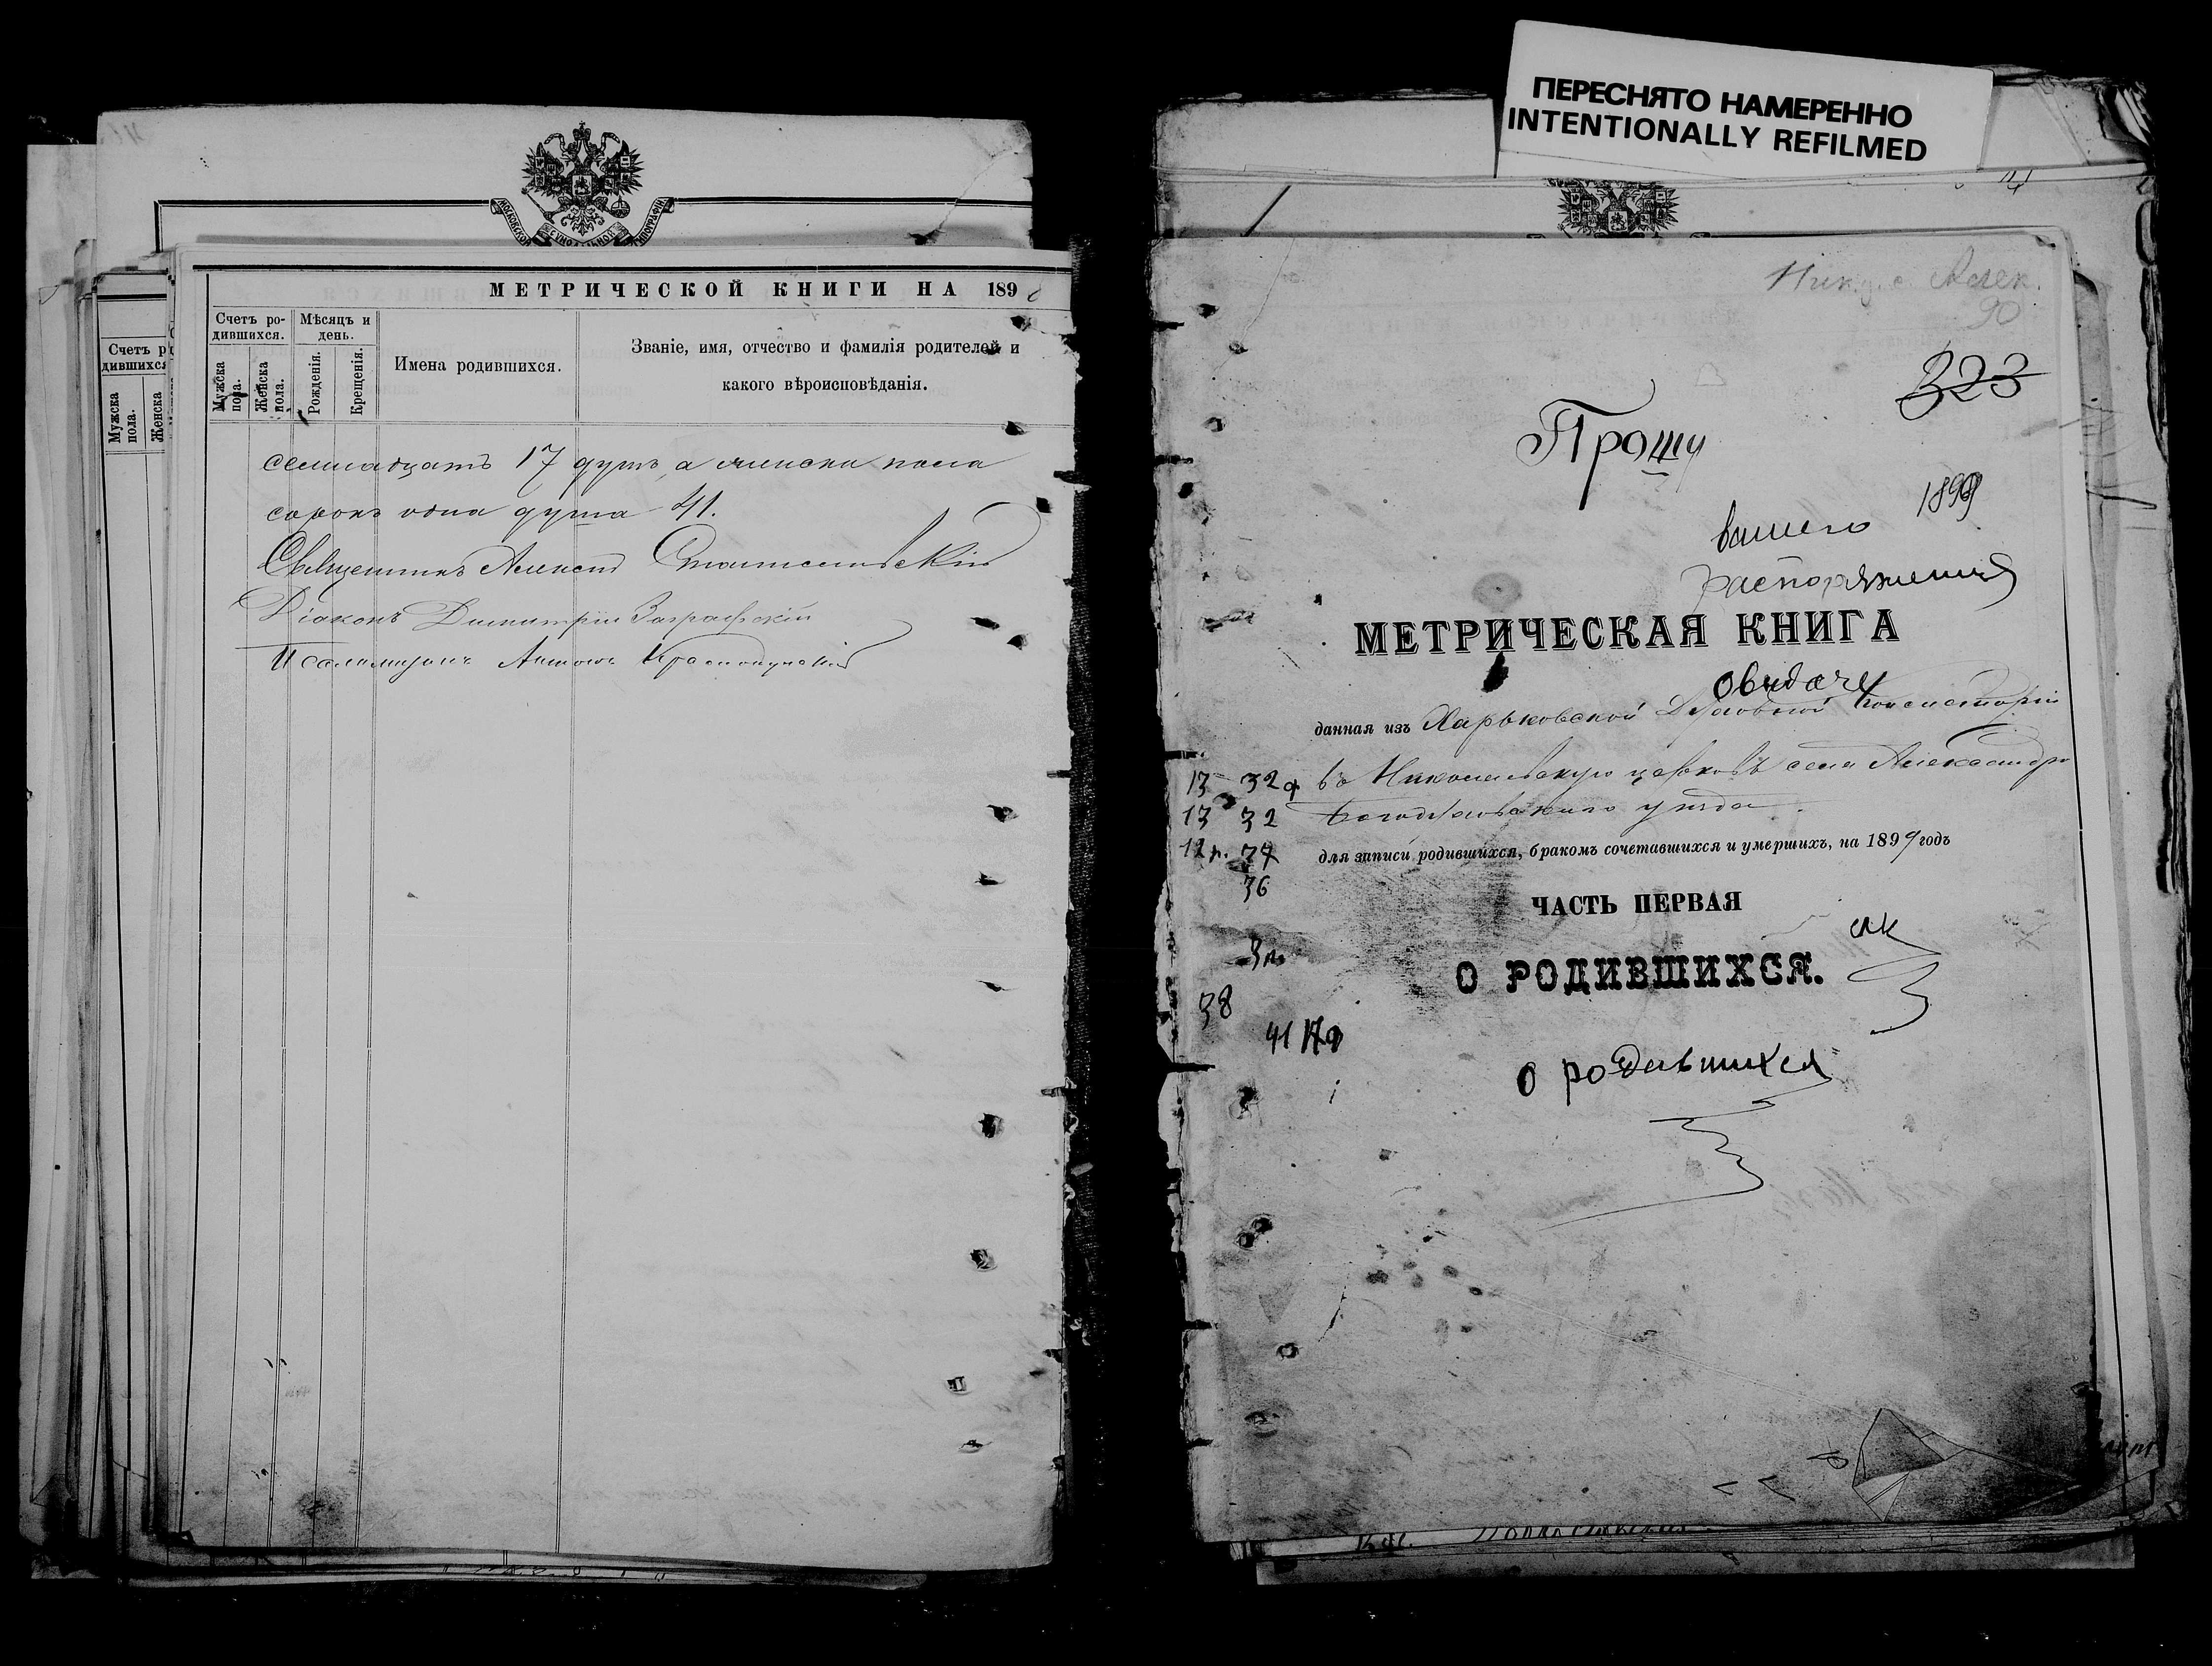 ПЕРЕСНЯТО НАМЕРЕННО
INTENTIONALLY REFILMED
МОСКОВСКОЙ СѴНОДАЛЬНОЙ ТИПОГРАФІИ
МЕТРИЧЕСКОЙ КНИГИ НА 189
Счетъ ро-
дившихся.
Мѣсяцъ и
день.
Мужска
пола.
Женска
пола.
Рожденія.
Крещенія.
Имена родившихся.
Званіе, имя, отчество и фамилія родителей и
какого вѣроисповѣданія.
Счетъ р
дившихся
Мужска
пола.
Женска
семнадцать 17 душъ, а женска пола
сорокъ одна душа 41.
Священникъ Алексей
Діаконъ Димитрій
Псаломщикъ Антоній
Ник. ц. с. Алек.
90
323
Прошу
1899
вашего
распоряжения
МЕТРИЧЕСКАЯ КНИГА
овыдачи
данная изъ Харьковской Духовной Консисторіи
въ Николаевскую церковь села Александр
Богодуховскаго уѣзда
для записи родившихся, бракомъ сочетавшихся и умершихъ, на 1899 годъ
13 32
13 32
12
36
38
41
ЧАСТЬ ПЕРВАЯ
О РОДИВШИХСЯ.
о родавшихся